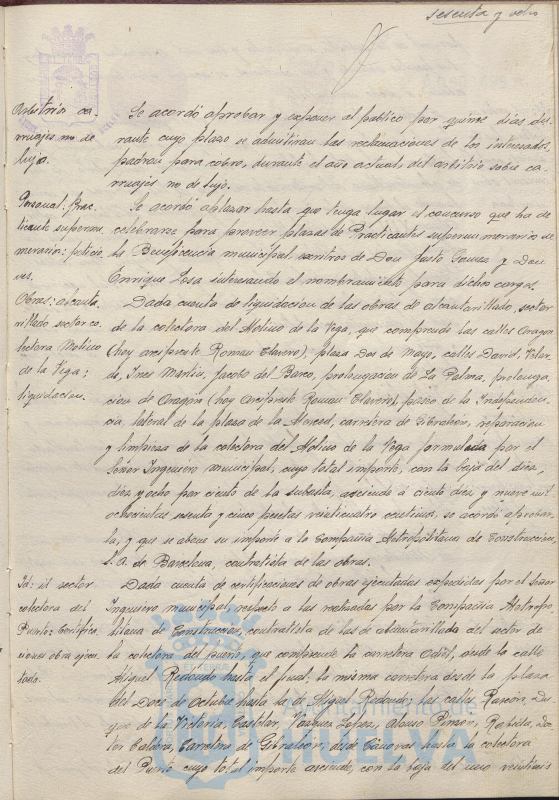 sesenta y ocho
Arbitrios ca-
rruajes no de
lujo.
Se acordó aprobar y exponer al publico por quince dias du-
rante cuyo plazo se admitiran las reclamaciones de los interesados,
padron para cobro, durante el año actual, del arbitrio sobre ca-
rruajes no de lujo.
Personal: Prac-
ticante supernu-
merarios: peticio-
nes.
Se acordó aplazar hasta que tenga lugar el concurso que ha de
celebrarse para proveer plazas de Practicantes supernumerarios de
la Beneficencia municipal escritos de Don Justo Gomez y Don
Enrique Losa interesando el nombramiento para dichos cargos.
Obras: alcanta-
rillado sector co-
lectora Molino
de la Vega;
liquidacion.
Dada cuenta de liquidacion de las obras de alcantarillado, sector
de la colectora del Molino de la Vega, que comprende las calles Aragon
(hoy arcipreste Roman Clavero), plaza Dos de Mayo, calles David, Velar-
de, Ines Martin, Jacobo del Barco, prolongacion de La Palma, prolonga-
cion de Aragón (hoy Arcipreste Roman Clavero), paseo de la Independen-
cia, lateral de la plaza de la Merced, carretera de Gibraleón, reparacion
y limpieza de la colectora del Molino de la Vega formulada por el
Señor Ingeniero municipal, cuyo total importe, con la baja del diez,
diez y ocho por ciento de la subasta, asciende a ciento diez y nueve mil
ochocientas sesenta y cinco pesetas veinticuatro centimos, se acordó aprobar-
la, y que se abone su importe a la Compañia Metropolitana de Construccion,
S.A. de Barcelona, contratista de las obras.
Id: id sector
colectora del
Puerto: Certifica-
ciones obra ejecu-
tada.
Dada cuenta de certificaciones de obras ejecutadas expedidas por el Señor
Ingeniero municipal, respecto a las realizadas por la Compañia Metropo-
litana de Construccion, contratista de las de alcantarillado del sector de
la colectora del Puerto, que comprende la carretera Odiel, desde la calle
Miguel Redondo hasta el final; la misma carretera desde la plaza
del Doce de Octubre hasta la de Miguel Redondo; las calles Rascón, Du-
que de la Victoria, Castelar, Vazquez Lopez, Alonso Pinzon, Rabida, Doc-
tor Cadora, Carretera de Gibraleón, desde Canovas hasta la colectora
del Puerto cuyo total importe asciende, con la baja del uno veintiseis
Ayuntamiento de
HUELVA